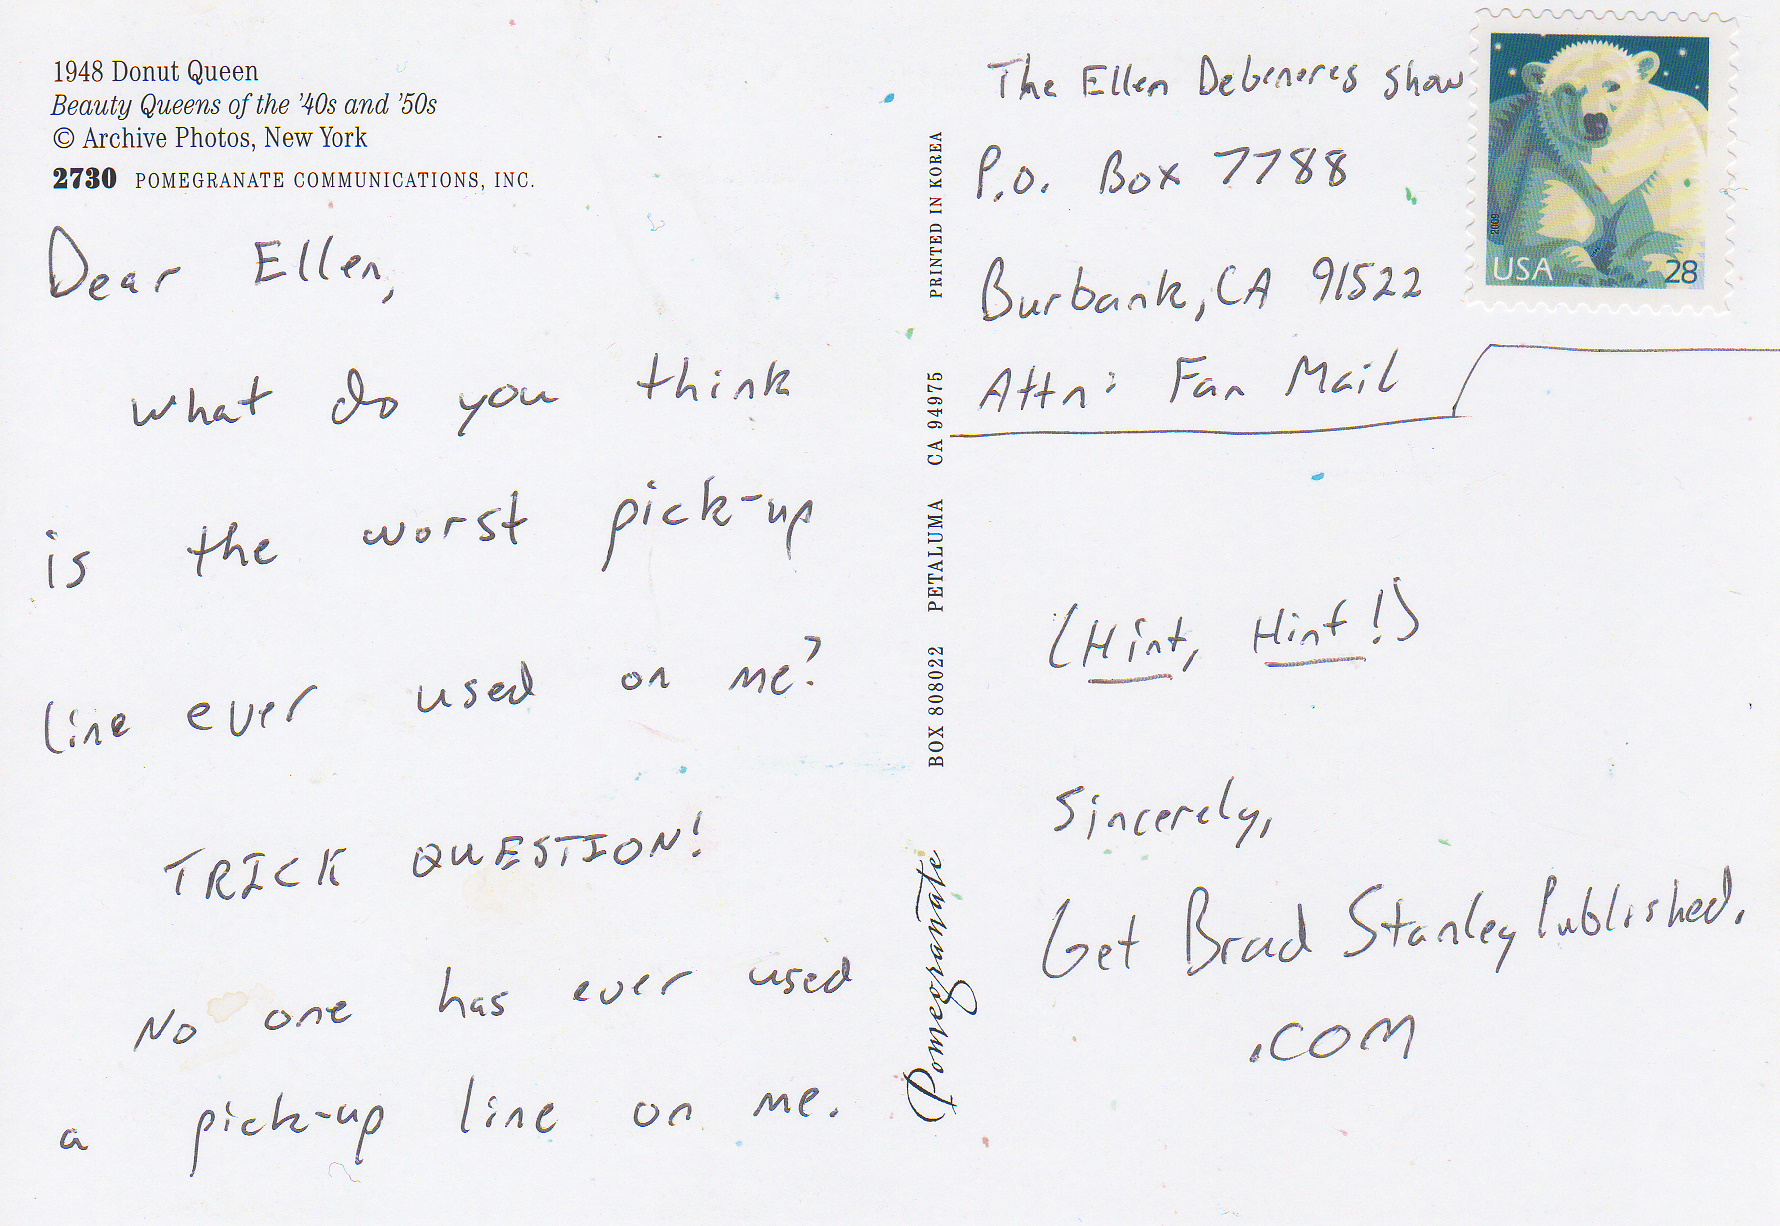 1948 Donut Queen
Beauty Queens of the '40s and '50s
© Archive Photos, New York
2730 POMEGRANATE COMMUNICATIONS, INC.
Dear Ellen,
What do you think
is the worst pick-up
line ever used on me?
TRICK QUESTION!
No one has ever used
a pick-up line on me.
BOX 808022 PETALUMA CA 94975 PRINTED IN KOREA
Pomegranate
The Ellen Degeneres Show
P.O. Box 7788
Burbank, CA 91522
Attn: Fan Mail
2009
USA 28
(Hint, Hint!)
Sincerely,
Get Brad Stanley Published.
.COM